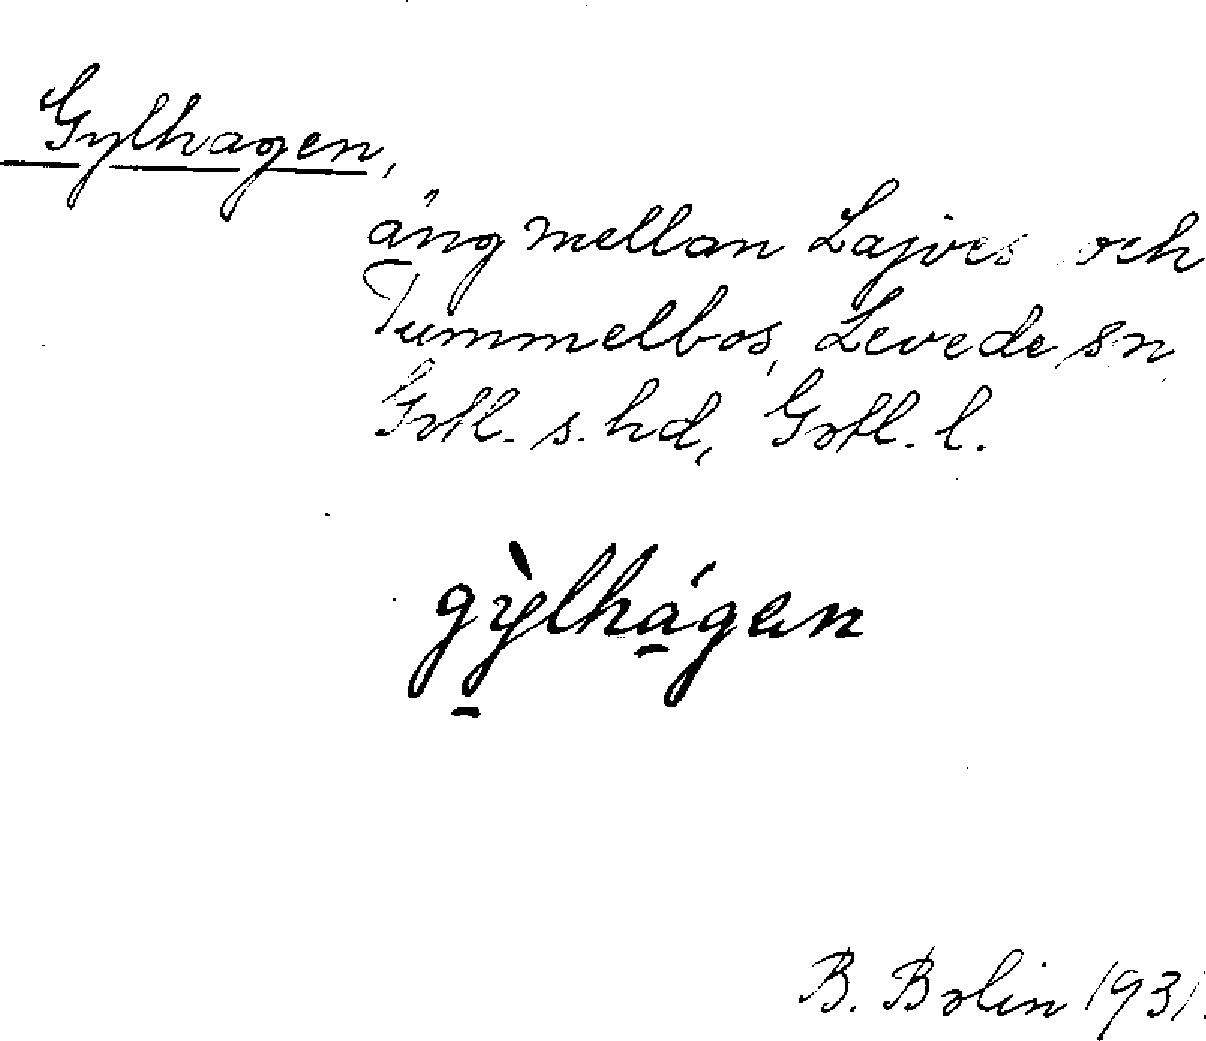 Gylhagen,
äng mellan Lajves och
Tummelbos, Levede sn
Gotl. s. hd, Gotl. l.
gỳlhágan
B. Bolin 1931.